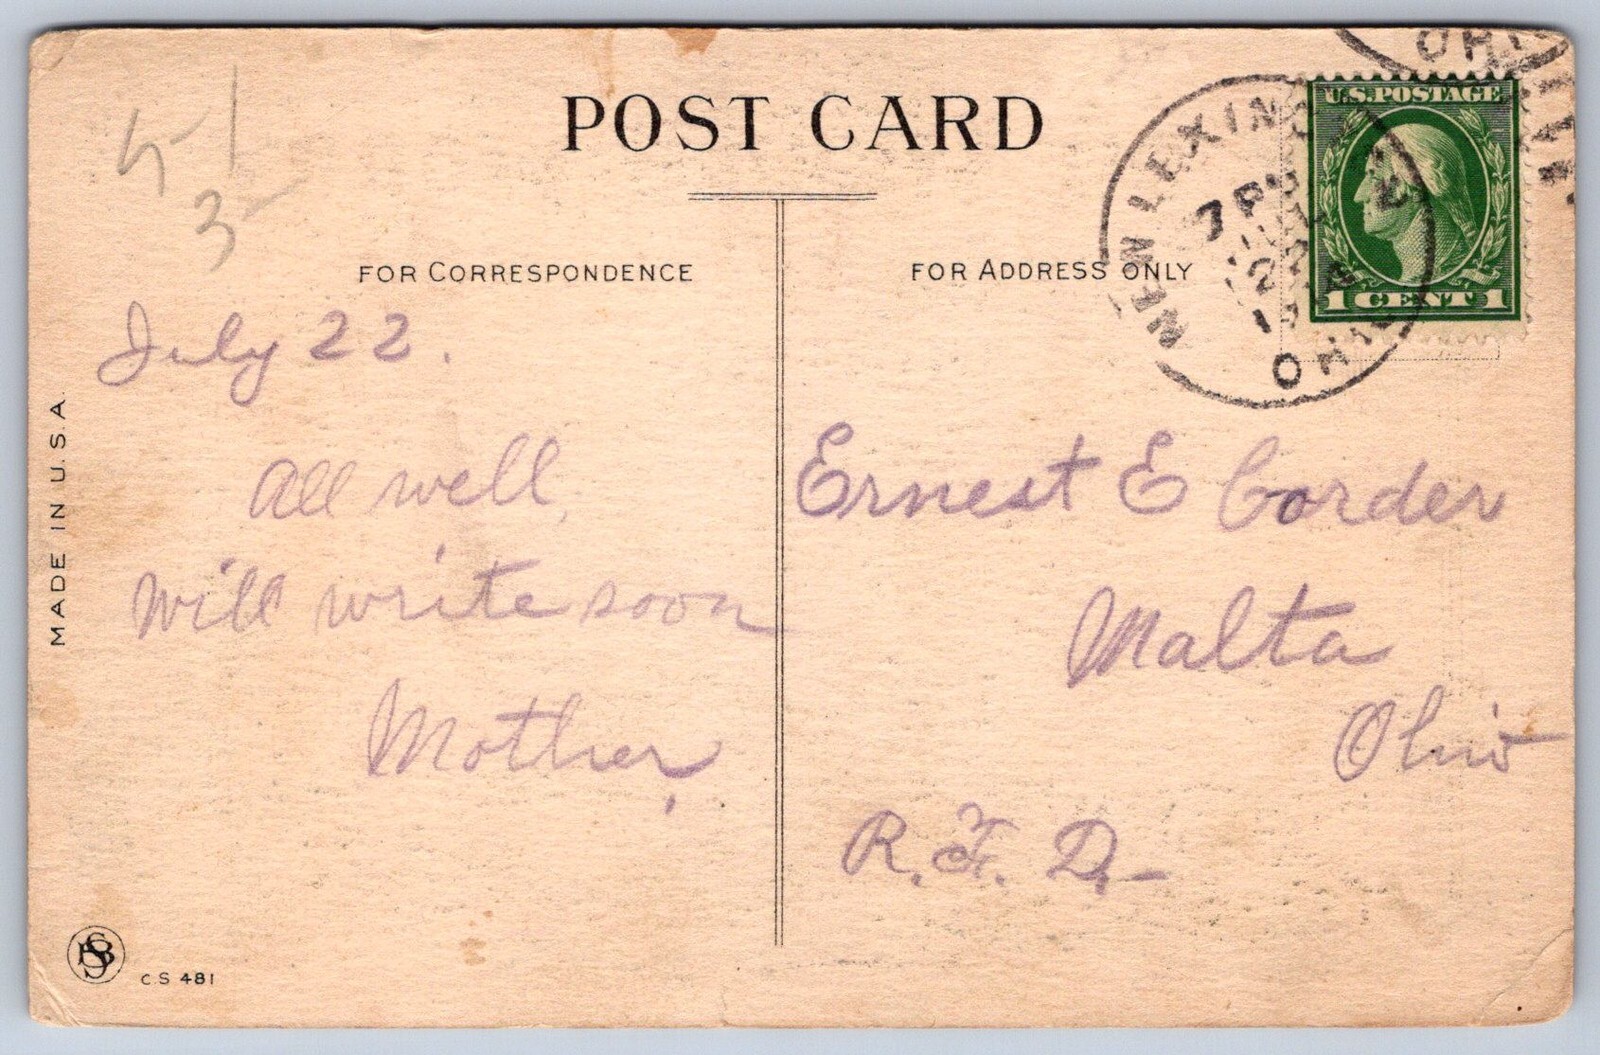 POST CARD
FOR CORRESPONDENCE
FOR ADDRESS ONLY
NEW LEXINGTON
7 PM
JUL
22
OHIO
OHIO
U.S. POSTAGE
1 CENT 1
5-1
3-
July 22.
All well,
Will write soon
Mother,
Ernest E Corder
Malta
Ohio
R.F.D.-
MADE IN U.S.A.
C.S 481